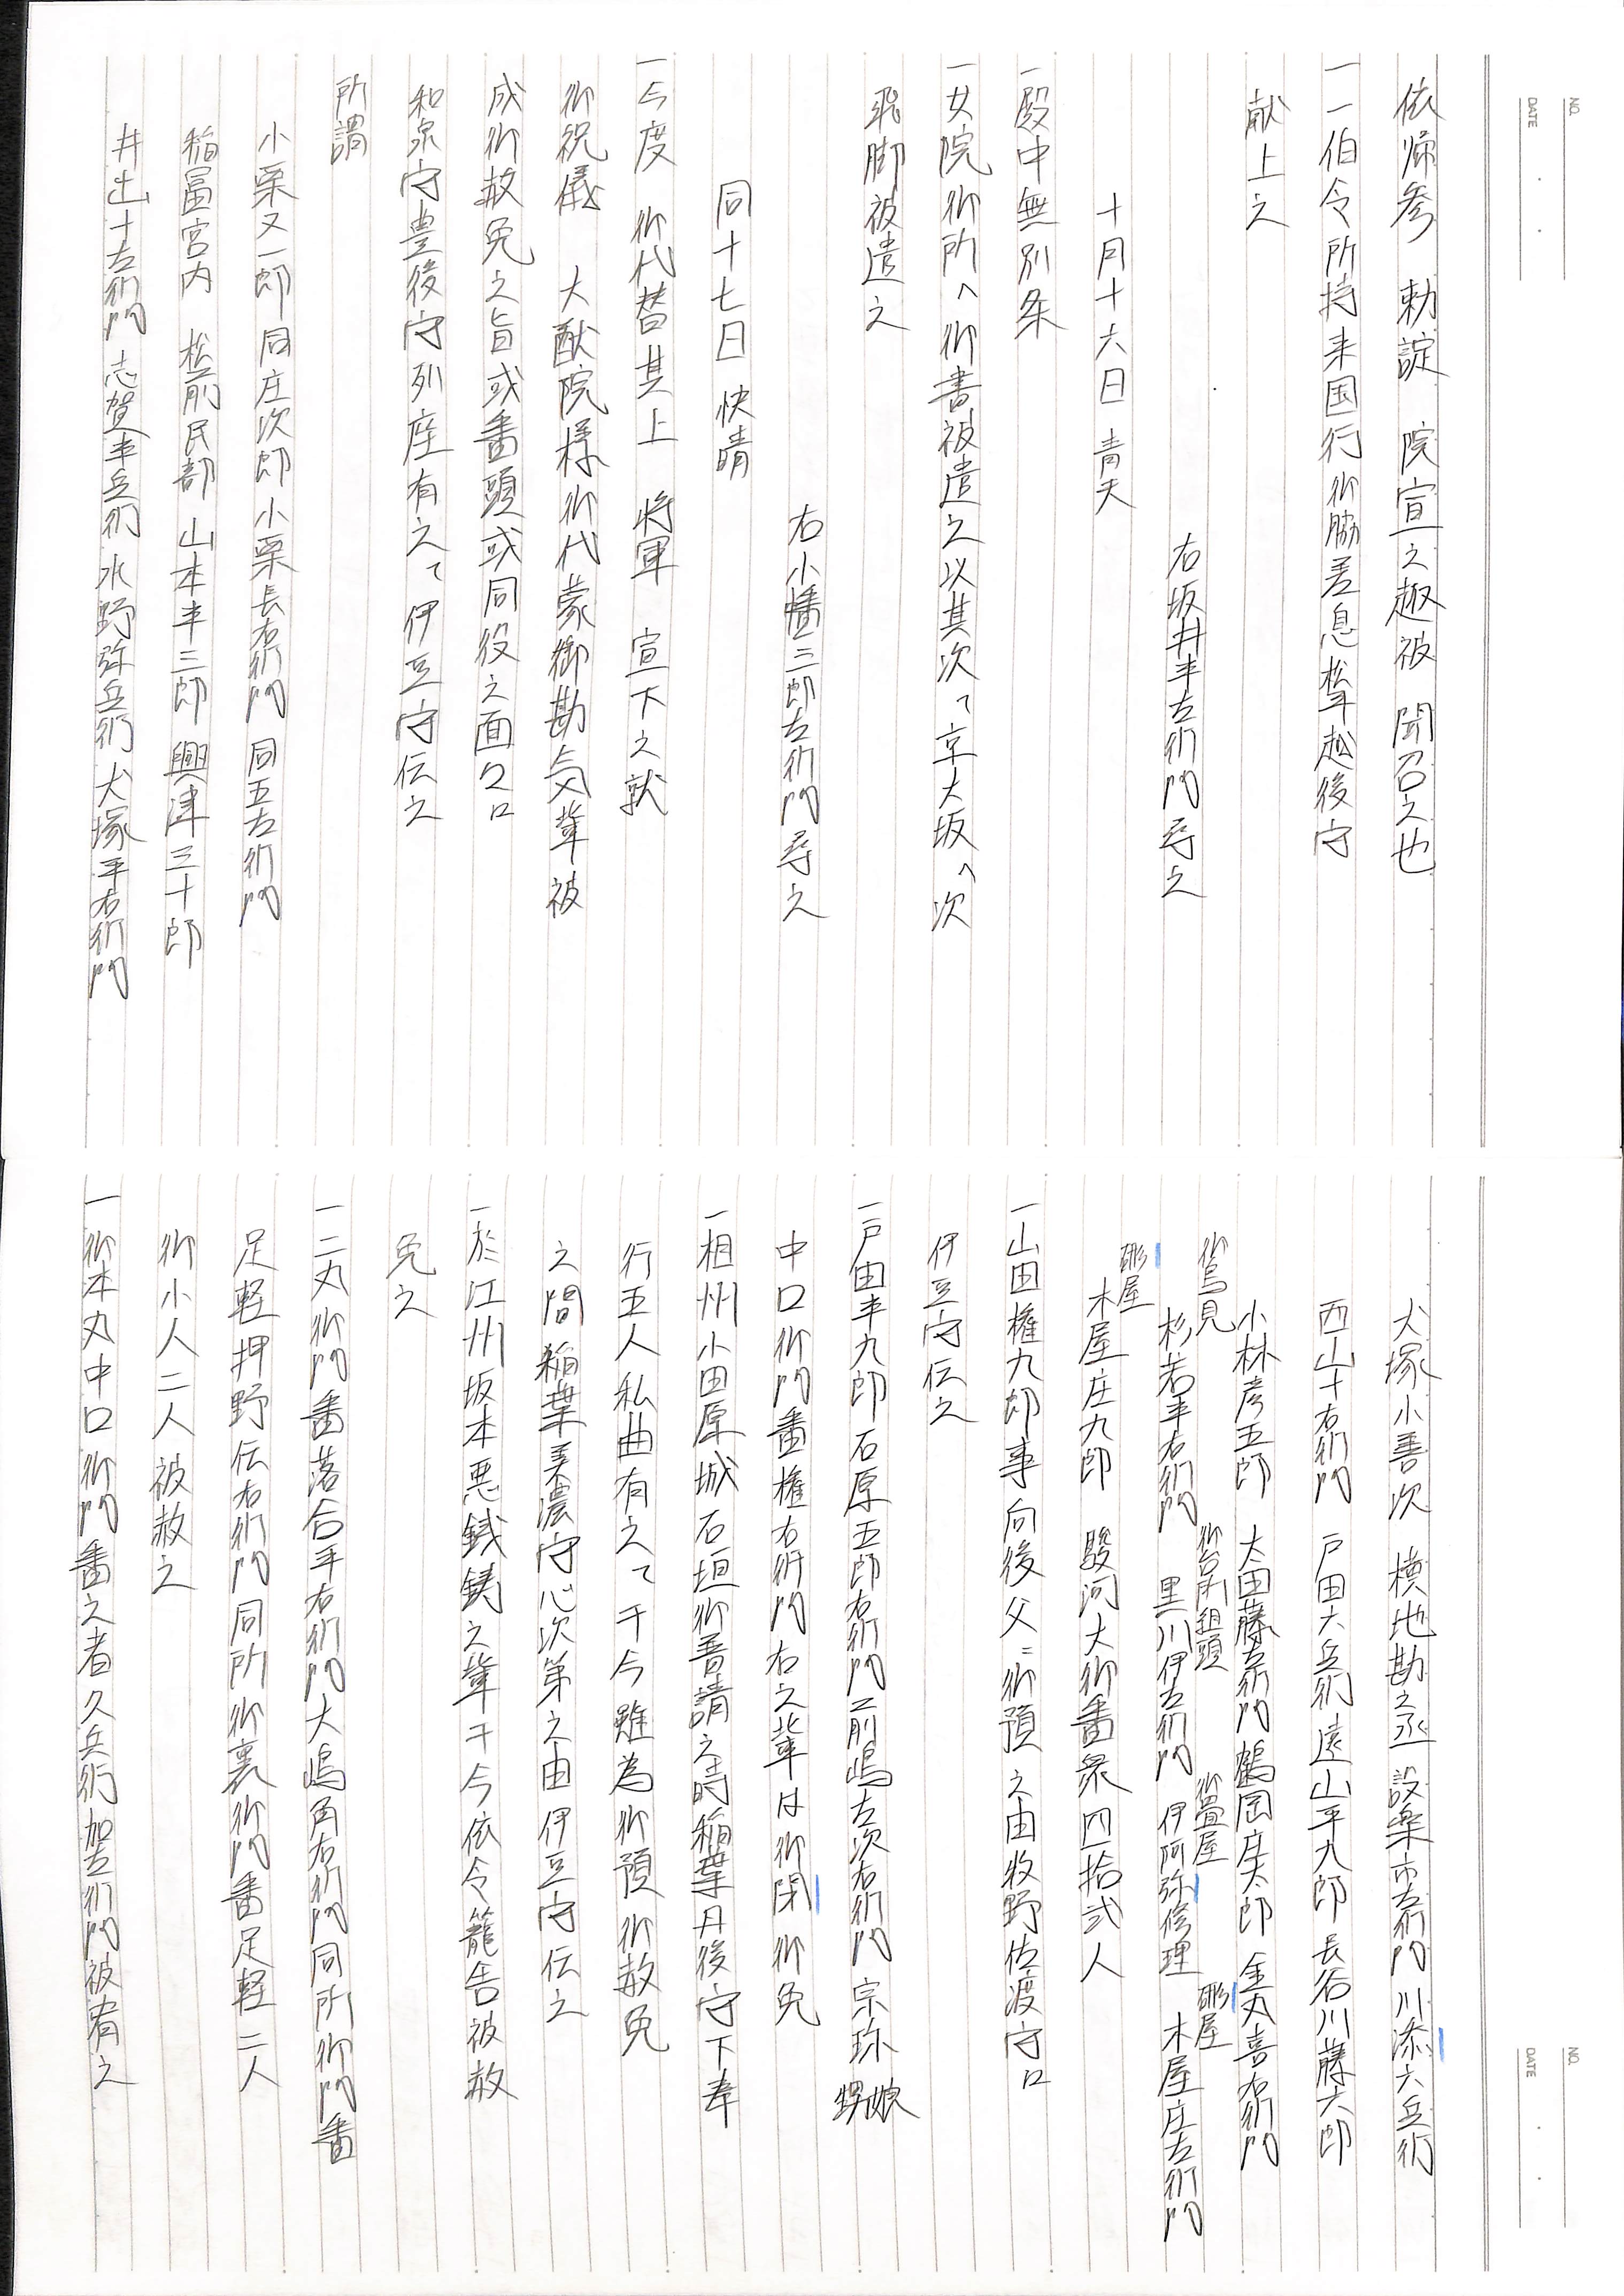 依帰参　勅諚　院宣之趣被　聞召之也
一一伯令所持来国行御脇差息松平越後守
献上之
右坂井半左衛門尋之
十月十六日　青天
一殿中無別条
一女院御所へ御書被遣之以其次て京大坂へ次
飛脚被遣之
右小幡三郎左衛門尋之
同十七日　快晴
一今度　御代替其上　将軍　宣下之就
御祝儀　大猷院様御代蒙御勘気輩被
成御赦免之旨或番頭或同役之面々ロ
和泉守豊後守列座有之て伊豆守伝之
所謂
小栗又一郎　同庄次郎　小栗長右衛門　同五左衛門
稲冨宮内　松前民部　山本半三郎　興津三十郎
井出十左衛門　志賀半兵衛　水野弥兵衛　犬塚平右衛門
犬塚小善次　横地勘之丞　設楽市左衛門　川添六兵衛
西山十右衛門　戸田六兵衛　遠山平九郎　長谷川藤大郎
小林彦五郎　大田藤左衛門　鶴岡庄太郎　金丸喜右衛門
御鳥見　御台所組頭　御畳屋　彫屋
杉若平右衛門　黒川伊左衛門　伊阿弥修理　木屋庄左衛門
彫屋
木屋庄九郎　駿河大御番衆四拾弐人
一山田権九郎事向後父ニ御預之由牧野佐渡守ロ
伊豆守伝之
一戸田半九郎　石原五郎右衛門　前嶋左次右衛門　宗珎　甥娘
中口御門番権右衛門右之輩は御閉御免
一相州小田原城石垣御普請之時稲葉丹後守下奉
行五人私曲有之て于今雖為御預御赦免
之間稲葉美濃守心次第之由伊豆守伝之
一於江州坂本悪銭鋳之輩于今依令籠舎被赦
免之
一二丸御門番落合平右衛門大嶋角右衛門同所御門番
足軽押野伝右衛門同所御裏御門番足軽二人
御小人二人被赦之
一御本丸中口御門番之者久兵衛加左衛門被宥之
NO.
DATE
NO.
DATE